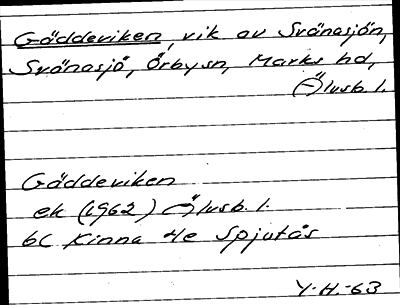 Gäddeviken, vik av Svänasjön,
Svänasjö, Örby sn, Marks hd,
Älvsb. l.
Gäddeviken
ek (1962) Älvsb. l.
6C Kinna 4e Spjutås
Y.H.-63